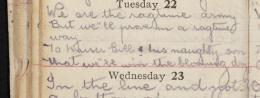 Tuesday 22
We are the ragtime army
But we'll prove in a ragtime
way
To Kaiser Bill & his naughty son
that we'll win the blooming day
Wednesday 23
In the line and got